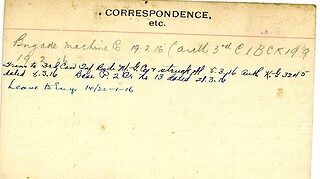 CORRESPONDENCE,
etc.
Brigade machine G 19.2.16 (auth 3rd C I B C K 199
19.2.16
Trans to 3rd Can Inf Bgde M.G. Coy & struck off 8.3.16 auth K-G 3245
dated 8.3.16 Base P. 2 Or No 13 dated 21.3.16
Leave to Eng. 14/22-1-16